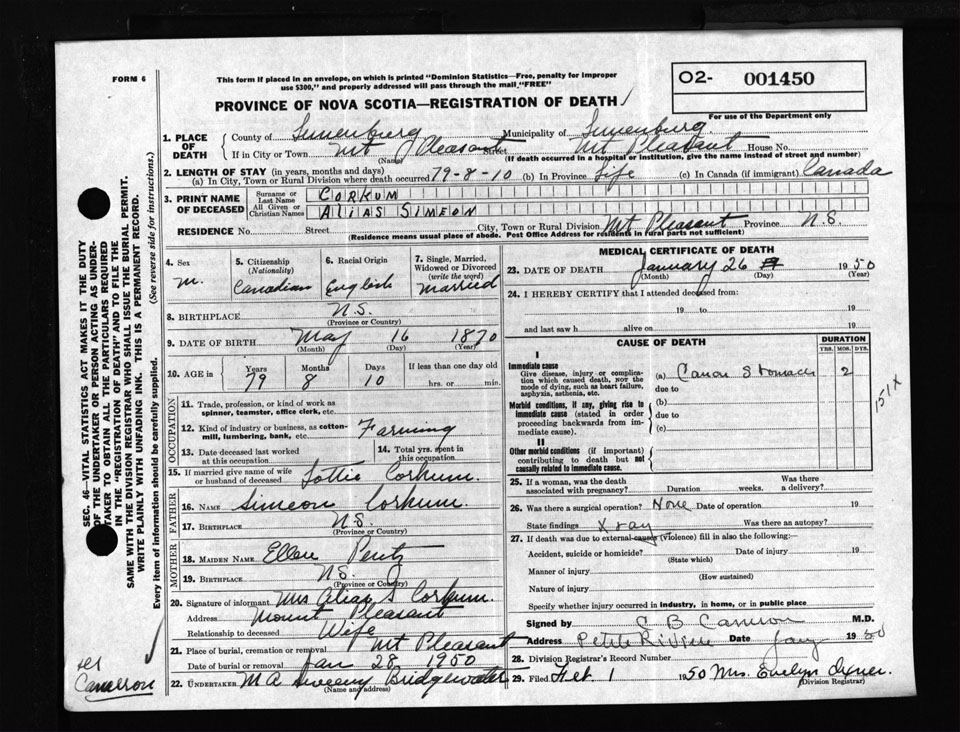 FORM 6
This form if placed in an envelope, on which is printed "Dominion Statistics—Free, penalty for improper
use $300," and properly addressed will pass through the mail "FREE"
O2- 001450
For use of the Department only
PROVINCE OF NOVA SCOTIA—REGISTRATION OF DEATH
1. PLACE OF DEATH { County of Lunenburg Municipality of Lunenburg
If in City or Town Mt Pleasant Street Mt Pleasant House No.
(Name) (If death occurred in a hospital or institution, give the name instead of street and number)
2. LENGTH OF STAY (in years, months and days)
(a) In City, Town or Rural Division where death occurred 79-8-10 (b) In Province Life (c) In Canada (if immigrant) Canada
3. PRINT NAME OF DECEASED { Surname or Last Name CORKUM
All Given or Christian Names ALIAS SIMEON
RESIDENCE No. Street City, Town or Rural Division Mt Pleasant Province N.S.
(Residence means usual place of abode. Post Office Address for residents in rural parts not sufficient)
4. Sex
M.
5. Citizenship
(Nationality)
Canadian
6. Racial Origin
English
7. Single, Married, Widowed or Divorced
(write the word)
Married
8. BIRTHPLACE N.S.
(Province or Country)
9. DATE OF BIRTH May 16 1870
(Month) (Day) (Year)
10. AGE in { Years Months Days If less than one day old
79 8 10 hrs. or min.
OCCUPATION
11. Trade, profession, or kind of work as spinner, teamster, office clerk, etc.
12. Kind of industry or business, as cotton-mill, lumbering, bank, etc. Farming
13. Date deceased last worked at this occupation
14. Total yrs. spent in this occupation
15. If married give name of wife or husband of deceased Lottie Corkum.
FATHER
16. NAME Simeon Corkum.
17. BIRTHPLACE N.S.
(Province or Country)
MOTHER
18. MAIDEN NAME Ellen Pentz
19. BIRTHPLACE N.S.
(Province or Country)
20. Signature of informant Mrs Alias S Corkum.
Address Mount Pleasant
Relationship to deceased Wife
21. Place of burial, cremation or removal Mt Pleasant
Date of burial or removal Jan 28 1950
22. UNDERTAKER M A Sweeny Bridgewater
(Name and address)
MEDICAL CERTIFICATE OF DEATH
23. DATE OF DEATH January 26 1950
(Month) (Day) (Year)
24. I HEREBY CERTIFY that I attended deceased from:
19 to 19
and last saw h alive on 19
CAUSE OF DEATH
DURATION
YRS. MOS. DYS.
I
Immediate cause
Give disease, injury or complication which caused death, NOT the mode of dying, such as heart failure, asphyxia, asthenia, etc.
(a) Cancer Stomach 2
due to
Morbid conditions, if any, giving rise to immediate cause (stated in order proceeding backwards from immediate cause).
(b)
due to
(c)
II
Other morbid conditions (if important) contributing to death but not causally related to immediate cause.
151X
25. If a woman, was the death associated with pregnancy? Duration weeks. Was there a delivery?
26. Was there a surgical operation? None Date of operation 19
State findings X ray Was there an autopsy?
27. If death was due to external causes (violence) fill in also the following:
Accident, suicide or homicide? Date of injury 19
(State which)
Manner of injury
(How sustained)
Nature of injury
Specify whether injury occurred in industry, in home, or in public place
Signed by C B Cameron M.D.
Address Petite Riviere Date Jany 1950
28. Division Registrar's Record Number
29. Filed Feb. 1 1950 Mrs. Evelyn
(Division Registrar)
SEC. 46—VITAL STATISTICS ACT MAKES IT THE DUTY
OF THE UNDERTAKER OR PERSON ACTING AS UNDER-
TAKER TO OBTAIN ALL THE PARTICULARS REQUIRED
IN THE "REGISTRATION OF DEATH" AND TO FILE THE
SAME WITH THE DIVISION REGISTRAR WHO SHALL ISSUE THE BURIAL PERMIT.
WRITE PLAINLY WITH UNFADING INK. THIS IS A PERMANENT RECORD.
Every item of information should be carefully supplied. (See reverse side for instructions.)
Cameron